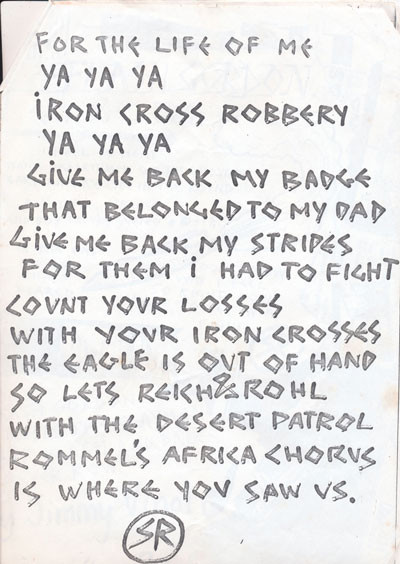 FOR THE LIFE OF ME
YA YA YA
iRON CROSS ROBBERY
YA YA YA
GiVE ME BACK MY BADGE
THAT BELONGED TO MY DAD
GiVE ME BACK MY STRIPES
FOR THEM i HAD TO FIGHT
COVNT YOVR LOSSES
WITH YOVR IRON CROSSES
THE EAGLE IS OVT OF HAND
SO LETS REICH & ROHL
WITH THE DESERT PATROL
ROMMEL'S AFRICA CHORVS
IS WHERE YOV SAW VS.
SR